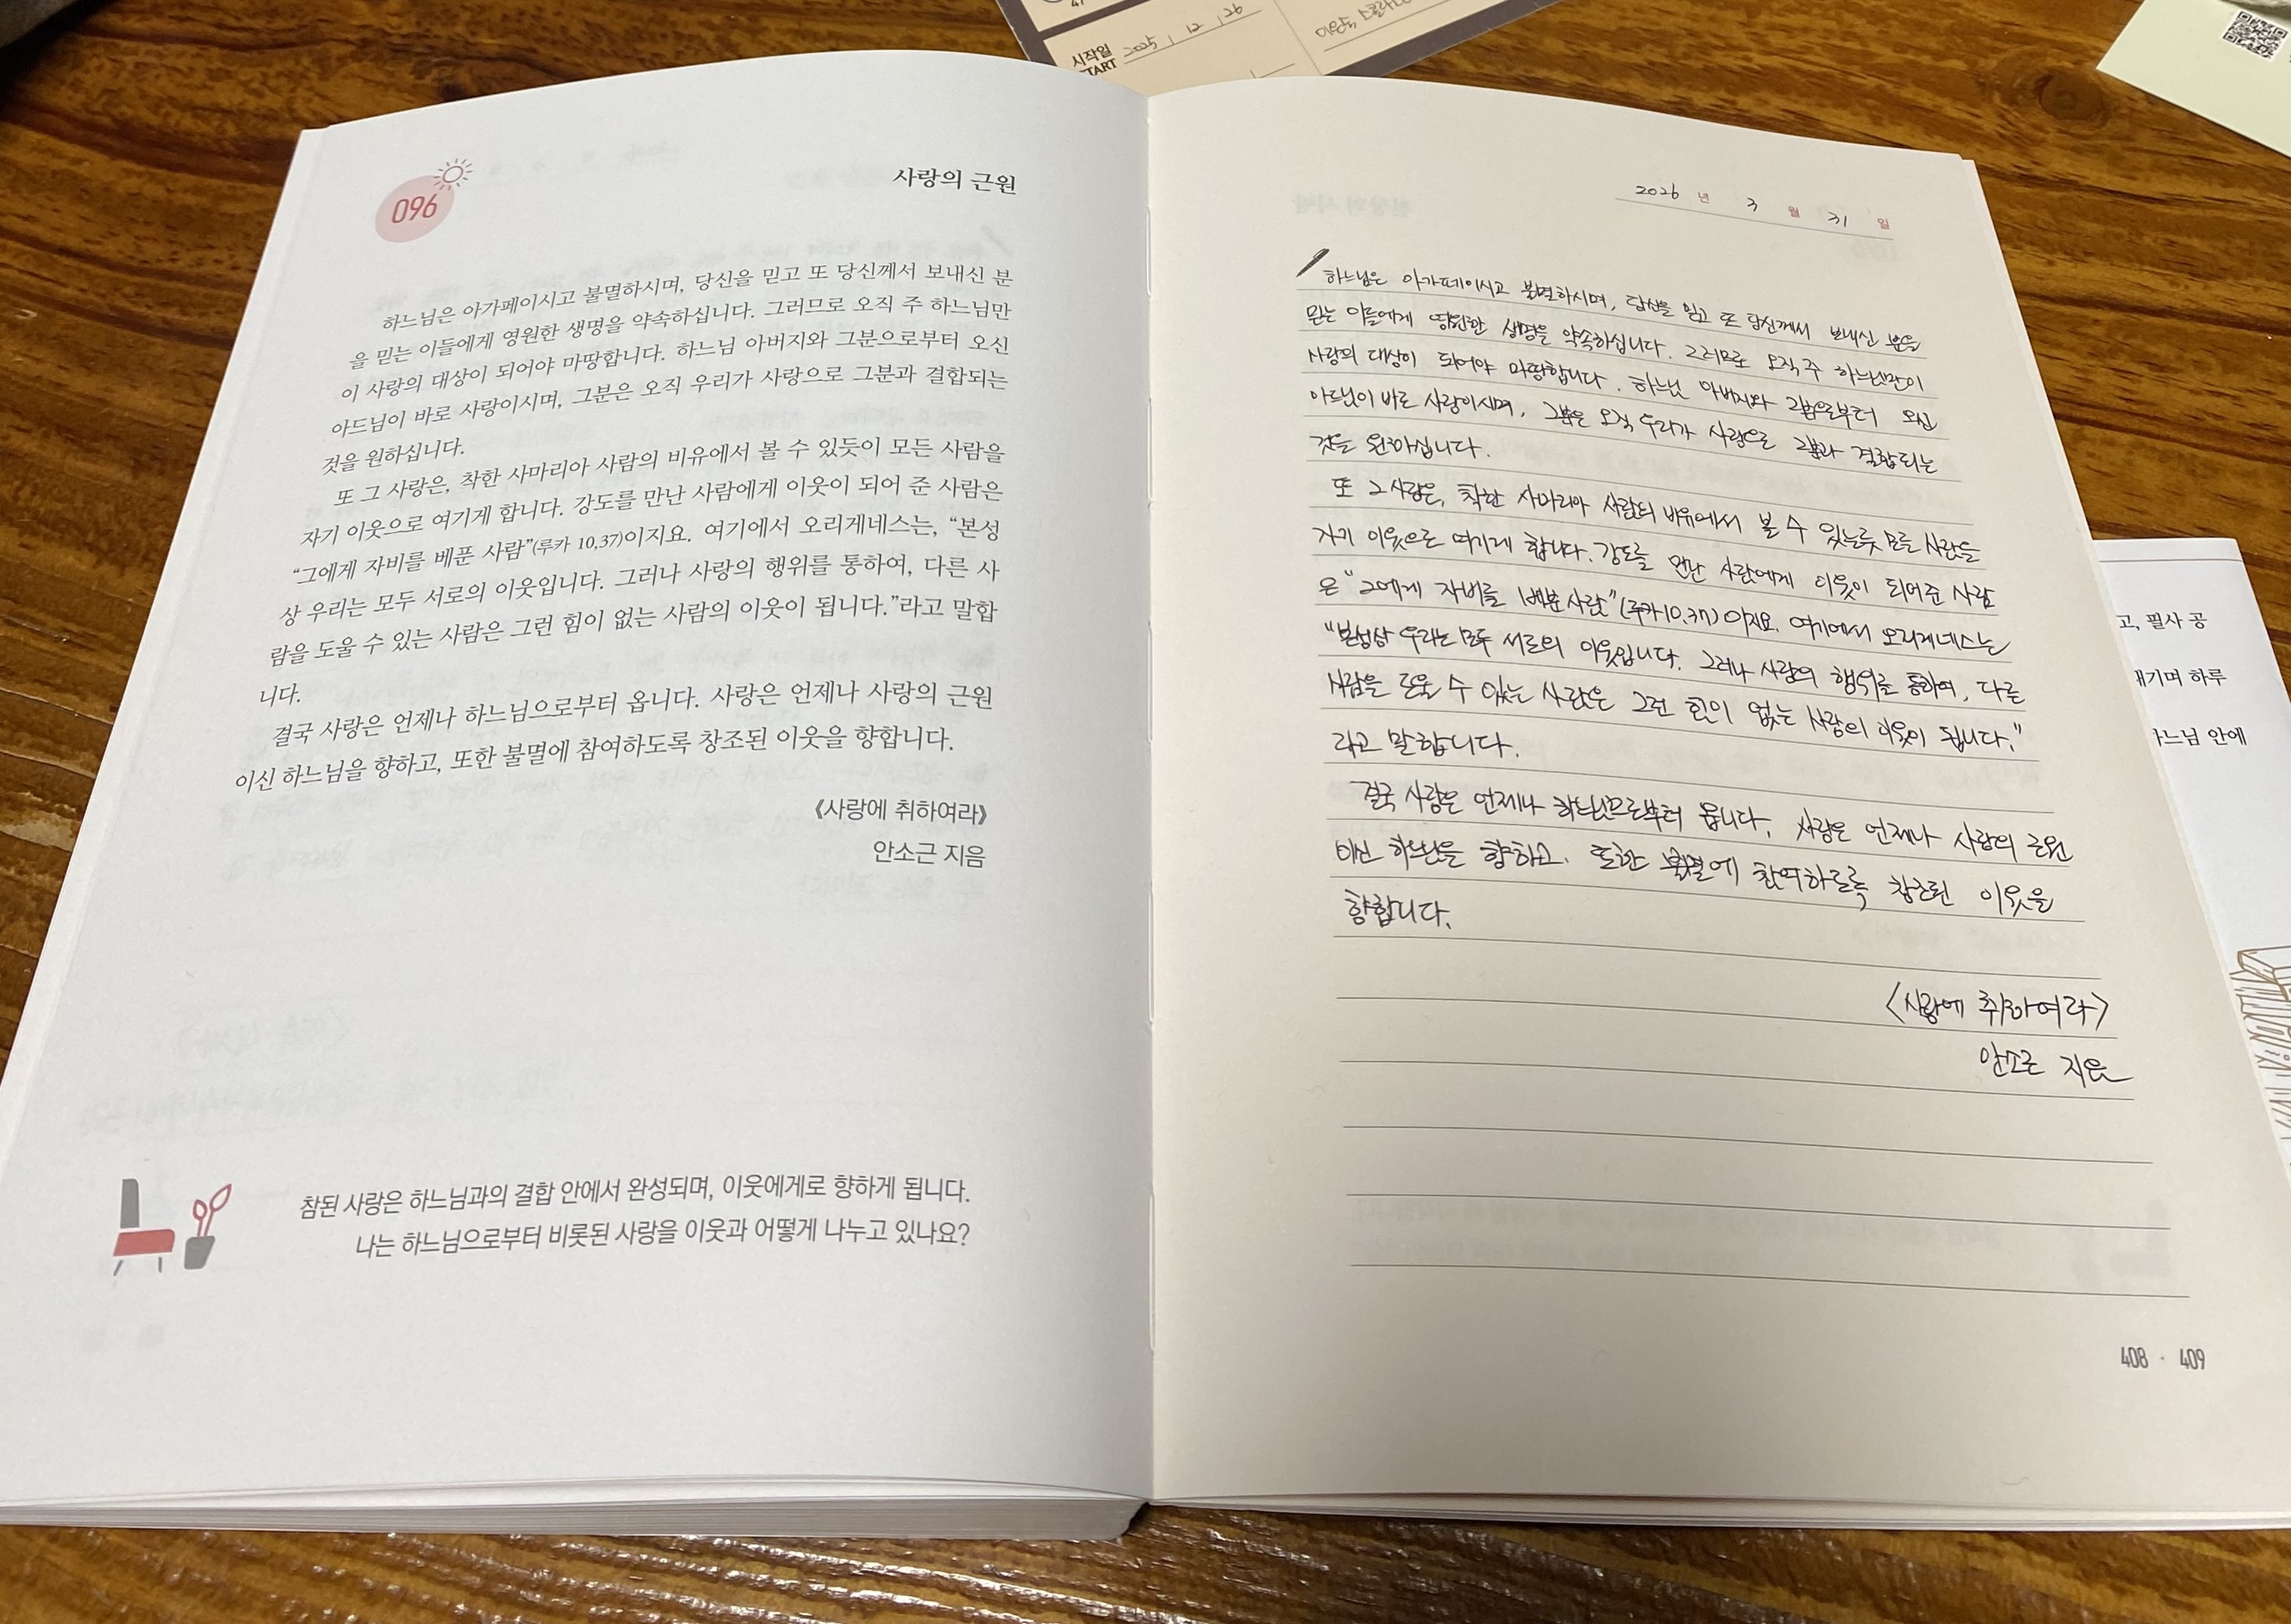 시작일 2025 | 12 | 26
START
096
사랑의 근원
하느님은 아가페이시고 불멸하시며, 당신을 믿고 또 당신께서 보내신 분
을 믿는 이들에게 영원한 생명을 약속하십니다. 그러므로 오직 주 하느님만
이 사랑의 대상이 되어야 마땅합니다. 하느님 아버지와 그분으로부터 오신
아드님이 바로 사랑이시며, 그분은 오직 우리가 사랑으로 그분과 결합되는
것을 원하십니다.
또 그 사랑은, 착한 사마리아 사람의 비유에서 볼 수 있듯이 모든 사람을
자기 이웃으로 여기게 합니다. 강도를 만난 사람에게 이웃이 되어 준 사람은
“그에게 자비를 베푼 사람”(루카 10,37)이지요. 여기에서 오리게네스는, “본성
상 우리는 모두 서로의 이웃입니다. 그러나 사랑의 행위를 통하여, 다른 사
람을 도울 수 있는 사람은 그런 힘이 없는 사람의 이웃이 됩니다.”라고 말합
니다.
결국 사랑은 언제나 하느님으로부터 옵니다. 사랑은 언제나 사랑의 근원
이신 하느님을 향하고, 또한 불멸에 참여하도록 창조된 이웃을 향합니다.
《사랑에 취하여라》
안소근 지음
참된 사랑은 하느님과의 결합 안에서 완성되며, 이웃에게로 향하게 됩니다.
나는 하느님으로부터 비롯된 사랑을 이웃과 어떻게 나누고 있나요?
2026 년 3 월 31 일
하느님은 아가페이시고 불멸하시며, 당신을 믿고 또 당신께서 보내신 분을
믿는 이들에게 영원한 생명을 약속하십니다. 그러므로 오직 주 하느님만이
사랑의 대상이 되어야 마땅합니다. 하느님 아버지와 그분으로부터 오신
아드님이 바로 사랑이시며, 그분은 오직 우리가 사랑으로 그분과 결합되는
것을 원하십니다.
또 그 사랑은, 착한 사마리아 사람의 비유에서 볼 수 있는듯 모든 사람을
자기 이웃으로 여기게 합니다. 강도를 만난 사람에게 이웃이 되어준 사람
은 “그에게 자비를 베푼 사람”(루카10.37)이지요. 여기에서 오리게네스는
“본성상 우리는 모두 서로의 이웃입니다. 그러나 사랑의 행위를 통하여, 다른
사람을 도울 수 있는 사람은 그런 힘이 없는 사람의 이웃이 됩니다.”
라고 말합니다.
결국 사랑은 언제나 하느님으로부터 옵니다. 사랑은 언제나 사랑의 근원
이신 하느님을 향하고. 또한 불멸에 참여하도록 창조된 이웃을
향합니다.
〈사랑에 취하여라〉
안소근 지음
408 · 409
고, 필사 공
새기며 하루
하느님 안에